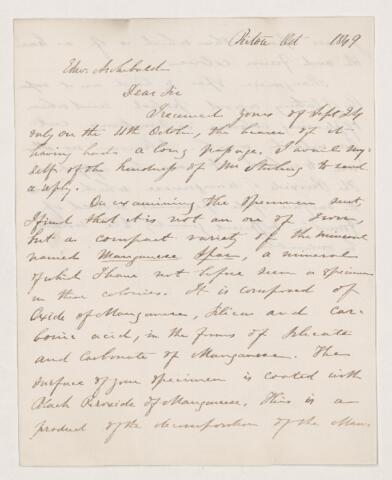 Pictou Oct 1849
Edw. Archibald
Dear Sir
I received yours of Sept 24
only on the 11th October, the bearer of it
having had a long passage. I avail my-
self of the kindness of Mr Sterling to send
a reply.
On examining the specimen sent,
I find that it is not an ore of Iron,
but a compact variety of the mineral
named Manganese Spar, a mineral
of which I have not before seen a specimen
in these colonies. It is composed of
Oxide of Manganese, Silica and car-
bonic acid, in the forms of Silicate
and Carbonate of Manganese. The
surface of your specimen is coated with
Black Peroxide of Manganese. This is a
product of the decomposition of the Man-